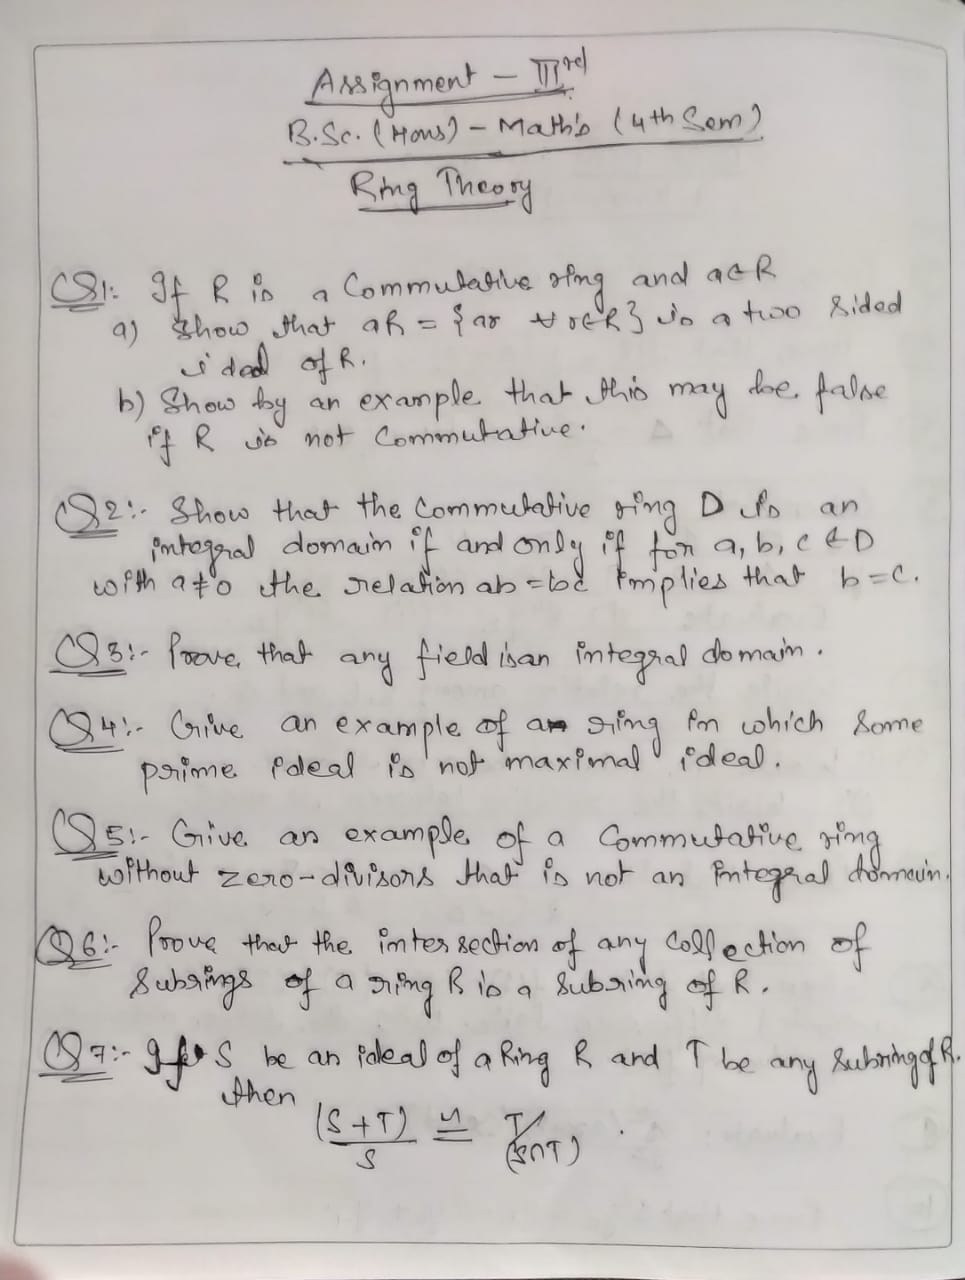 Assignment - IIIrd
B.Sc. (Hons) - Math's (4th Sem)
Ring Theory
Q1:- If R is a Commutative ring and a∈R
a) Show that aR = {ar ∀ r∈R} is a two sided
ideal of R.
b) Show by an example that this may be false
if R is not Commutative.
Q2:- Show that the Commutative ring D is an
integral domain if and only if for a, b, c ∈ D
with a≠0 the relation ab = bc implies that b=c.
Q3:- Prove that any field is an integral domain.
Q4:- Give an example of a ring in which some
prime ideal is not maximal ideal.
Q5:- Give an example of a Commutative ring
without zero-divisors that is not an integral domain.
Q6:- Prove that the intersection of any collection of
Subrings of a ring R is a Subring of R.
Q7:- If S be an ideal of a Ring R and T be any Subring of R.
then
(S+T)/S ≅ T/(S∩T) .